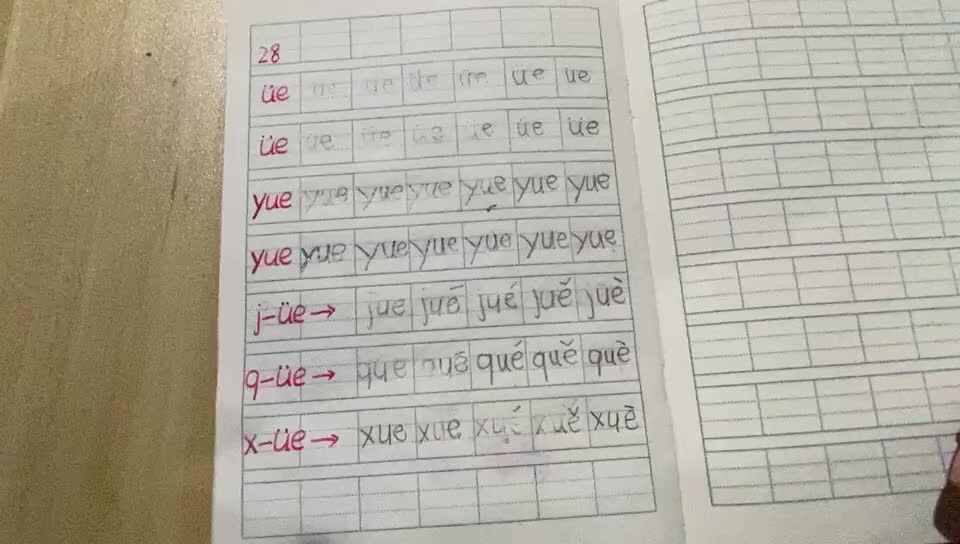 28
üe üe üe üe üe üe üe
üe üe üe üe üe üe üe
yue yue yue yue yue yue yue
yue yue yue yue yue yue yue
j-üe→ jue juē jué juě juè
q-üe→ que quē qué quě què
x-üe→ xue xue xué xuě xuè